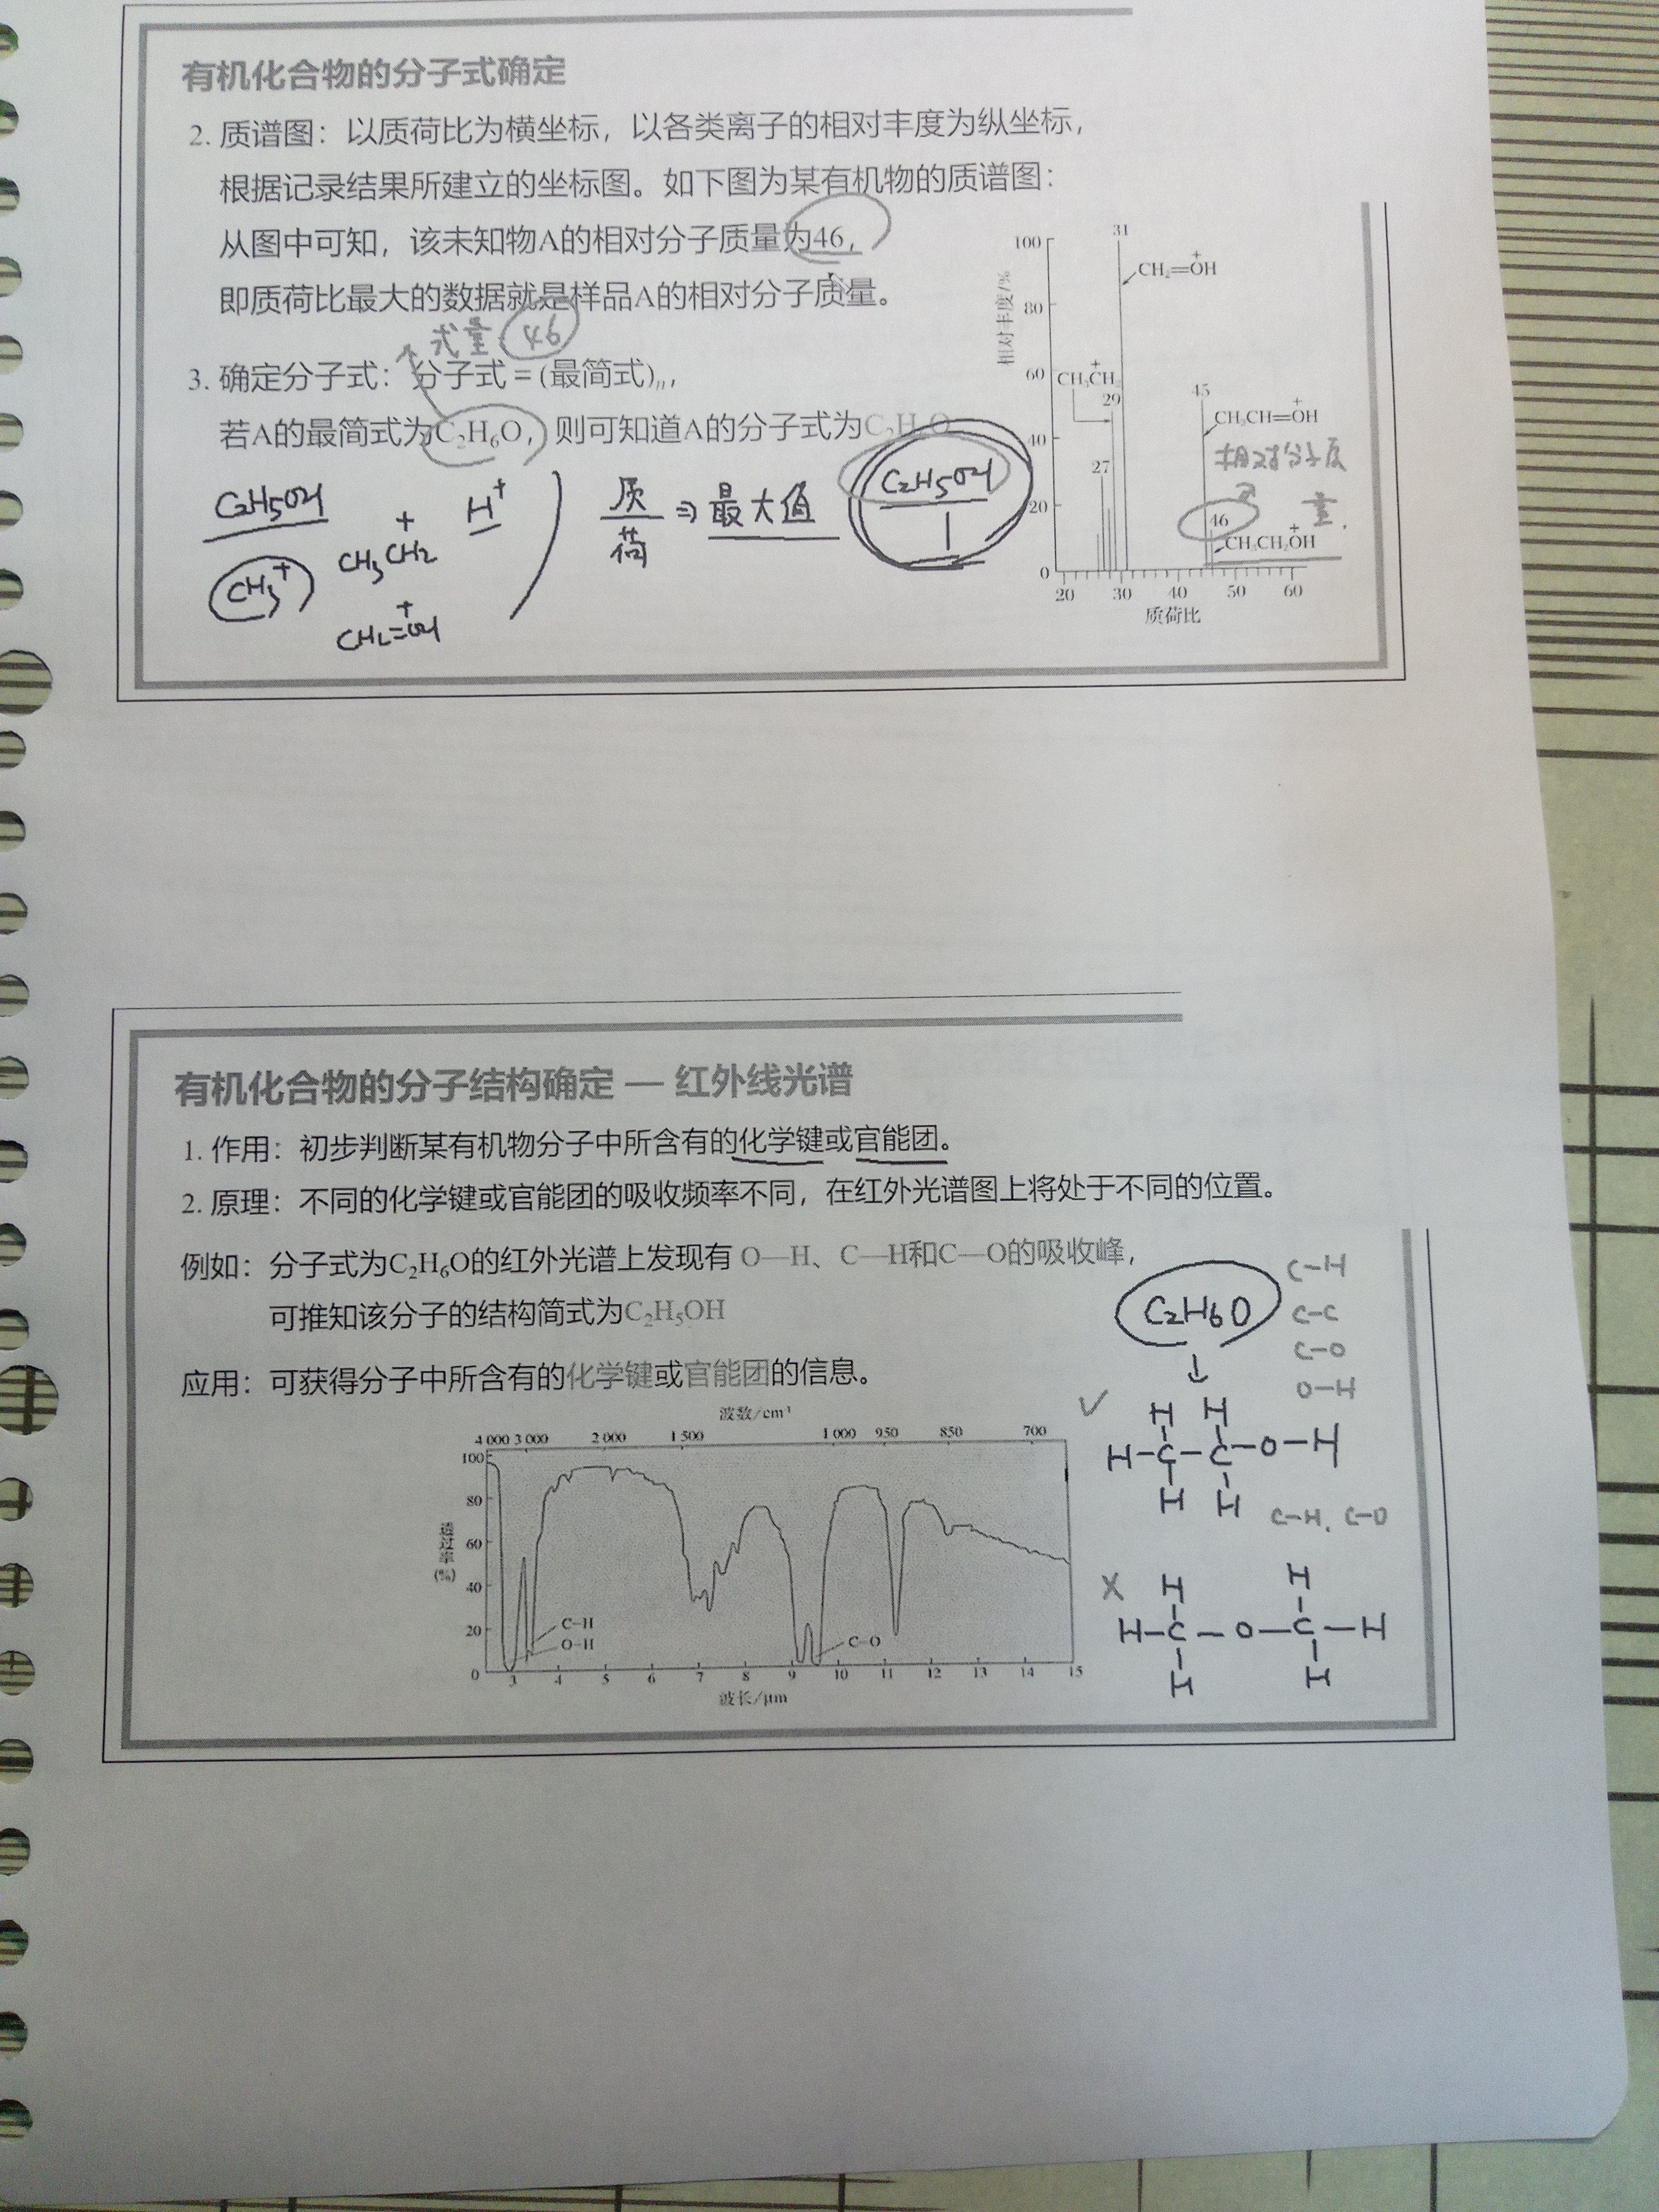 有机化合物的分子式确定
2. 质谱图：以质荷比为横坐标，以各类离子的相对丰度为纵坐标，
根据记录结果所建立的坐标图。如下图为某有机物的质谱图：
从图中可知，该未知物A的相对分子质量为46，
即质荷比最大的数据就是样品A的相对分子质量。
式量 46
3. 确定分子式：分子式＝(最简式)ₙ，
若A的最简式为C₂H₆O，则可知道A的分子式为C₂H₆O
C₂H₅OH
CH₃⁺
CH₃CH₂⁺
H⁺
CH₂=OH⁺
质
荷
⇒ 最大值
C₂H₅OH
1
相对丰度/%
100
80
60
40
20
0
31
CH₂=OH⁺
CH₃CH₂⁺
29
27
45
CH₃CH=OH⁺
相对分子质
量.
46
CH₃CH₂OH⁺
20 30 40 50 60
质荷比
有机化合物的分子结构确定 — 红外线光谱
1. 作用：初步判断某有机物分子中所含有的化学键或官能团。
2. 原理：不同的化学键或官能团的吸收频率不同，在红外光谱图上将处于不同的位置。
例如：分子式为C₂H₆O的红外光谱上发现有 O—H、C—H和C—O的吸收峰，
可推知该分子的结构简式为C₂H₅OH
应用：可获得分子中所含有的化学键或官能团的信息。
波数/cm⁻¹
4 000 3 000 2 000 1 500 1 000 950 850 700
透过率(%)
100
80
60
40
20
0
C—H
O—H
C—O
3 4 5 6 7 8 9 10 11 12 13 14 15
波长/μm
C₂H₆O
↓
C-H
C-C
C-O
O-H
✓
H H
H-C-C-O-H
H H
C-H、C-O
×
H H
H-C-O-C-H
H H